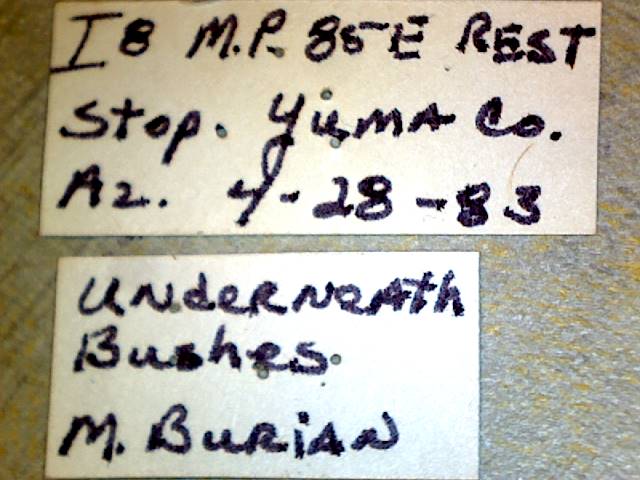 I8 M.P. 85-E REST
Stop. Yuma Co.
Az. 4-28-83
Underneath
Bushes.
M. Burian